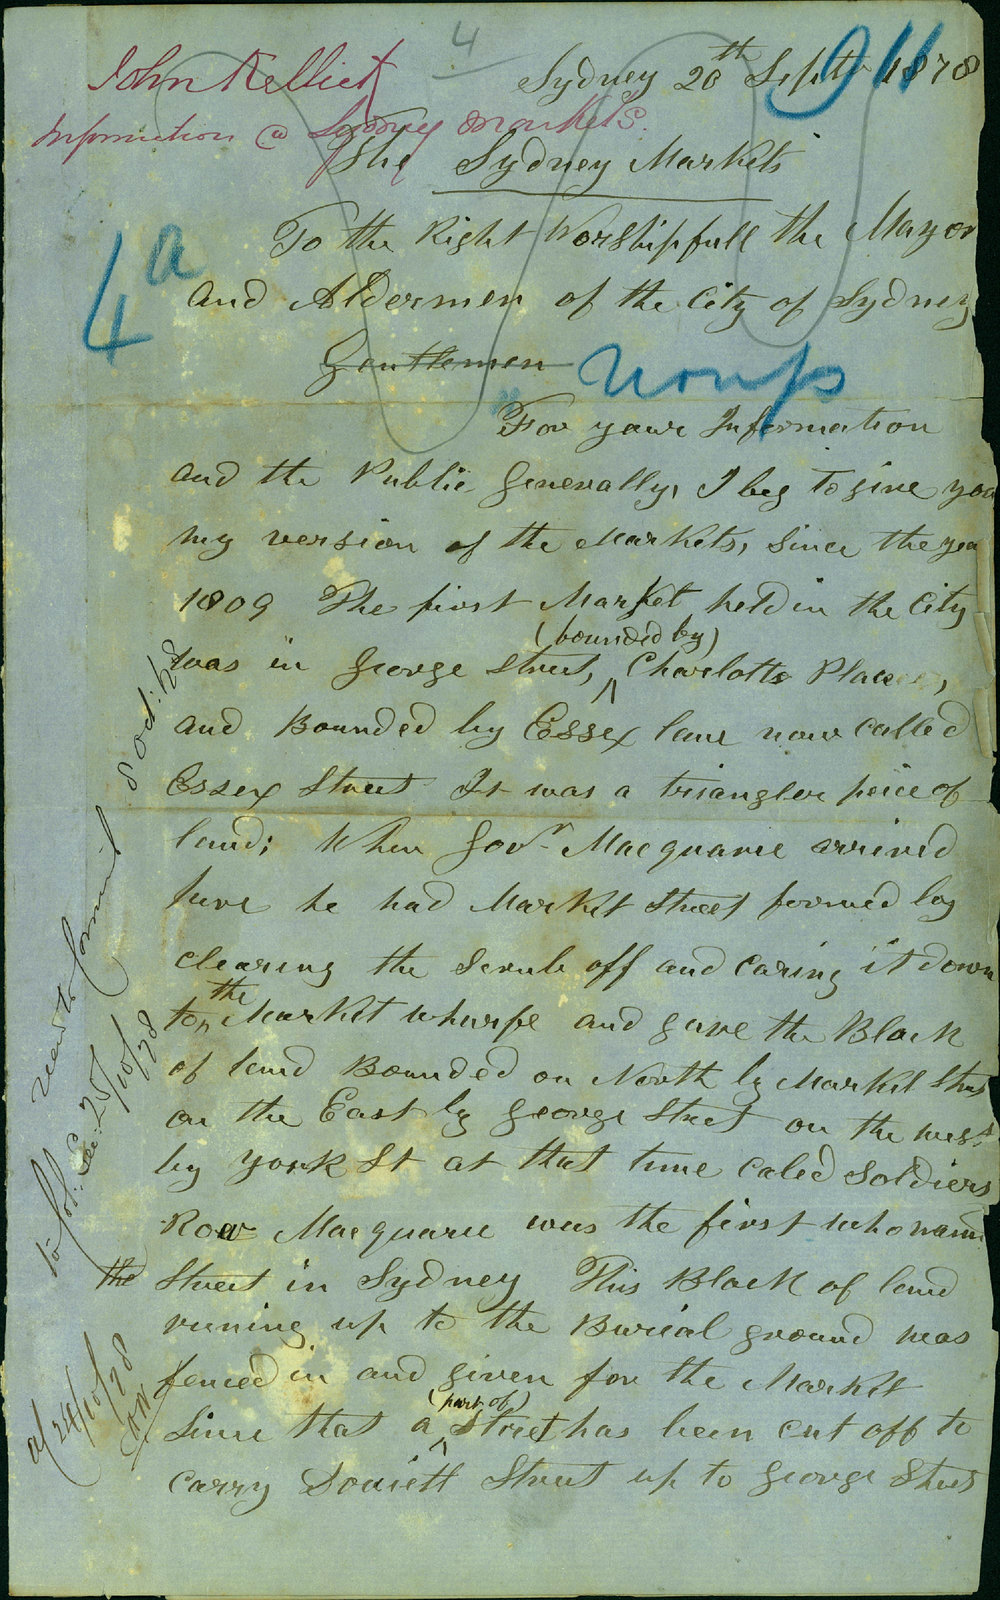 4
John Kellick
Sydney 20th Septr 1878
911
Information @ Sydney Markets.
The Sydney Markets
To the Right Worshipfull the Mayor
4a
and Aldermen of the City of Sydney
Gentlemen
For your Information
and the Public Generally, I beg to give you
my version of the Markets, since the year
1809 The first Market held in the City
(bounded by)
was in George Street, Charlotte Place,
and Bounded by Essex lane now called
Essex Street It was a triangler peice of
land; When Govr Macquarie arrived
here he had Market Street formed by
clearing the scrub off and caring it down
to the Market Wharfe and gave the Block
of land Bounded on North by Market Street
on the East by George Street on the west
by York St at that time caled Soldiers
Row Macquarie was the first who named
the Street in Sydney This Block of land
runing up to the Burial ground was
fenced in and given for the Market
(part of)
Since that a Street has been cut off to
carry Street up to George Street
24/10/78
25/10/78